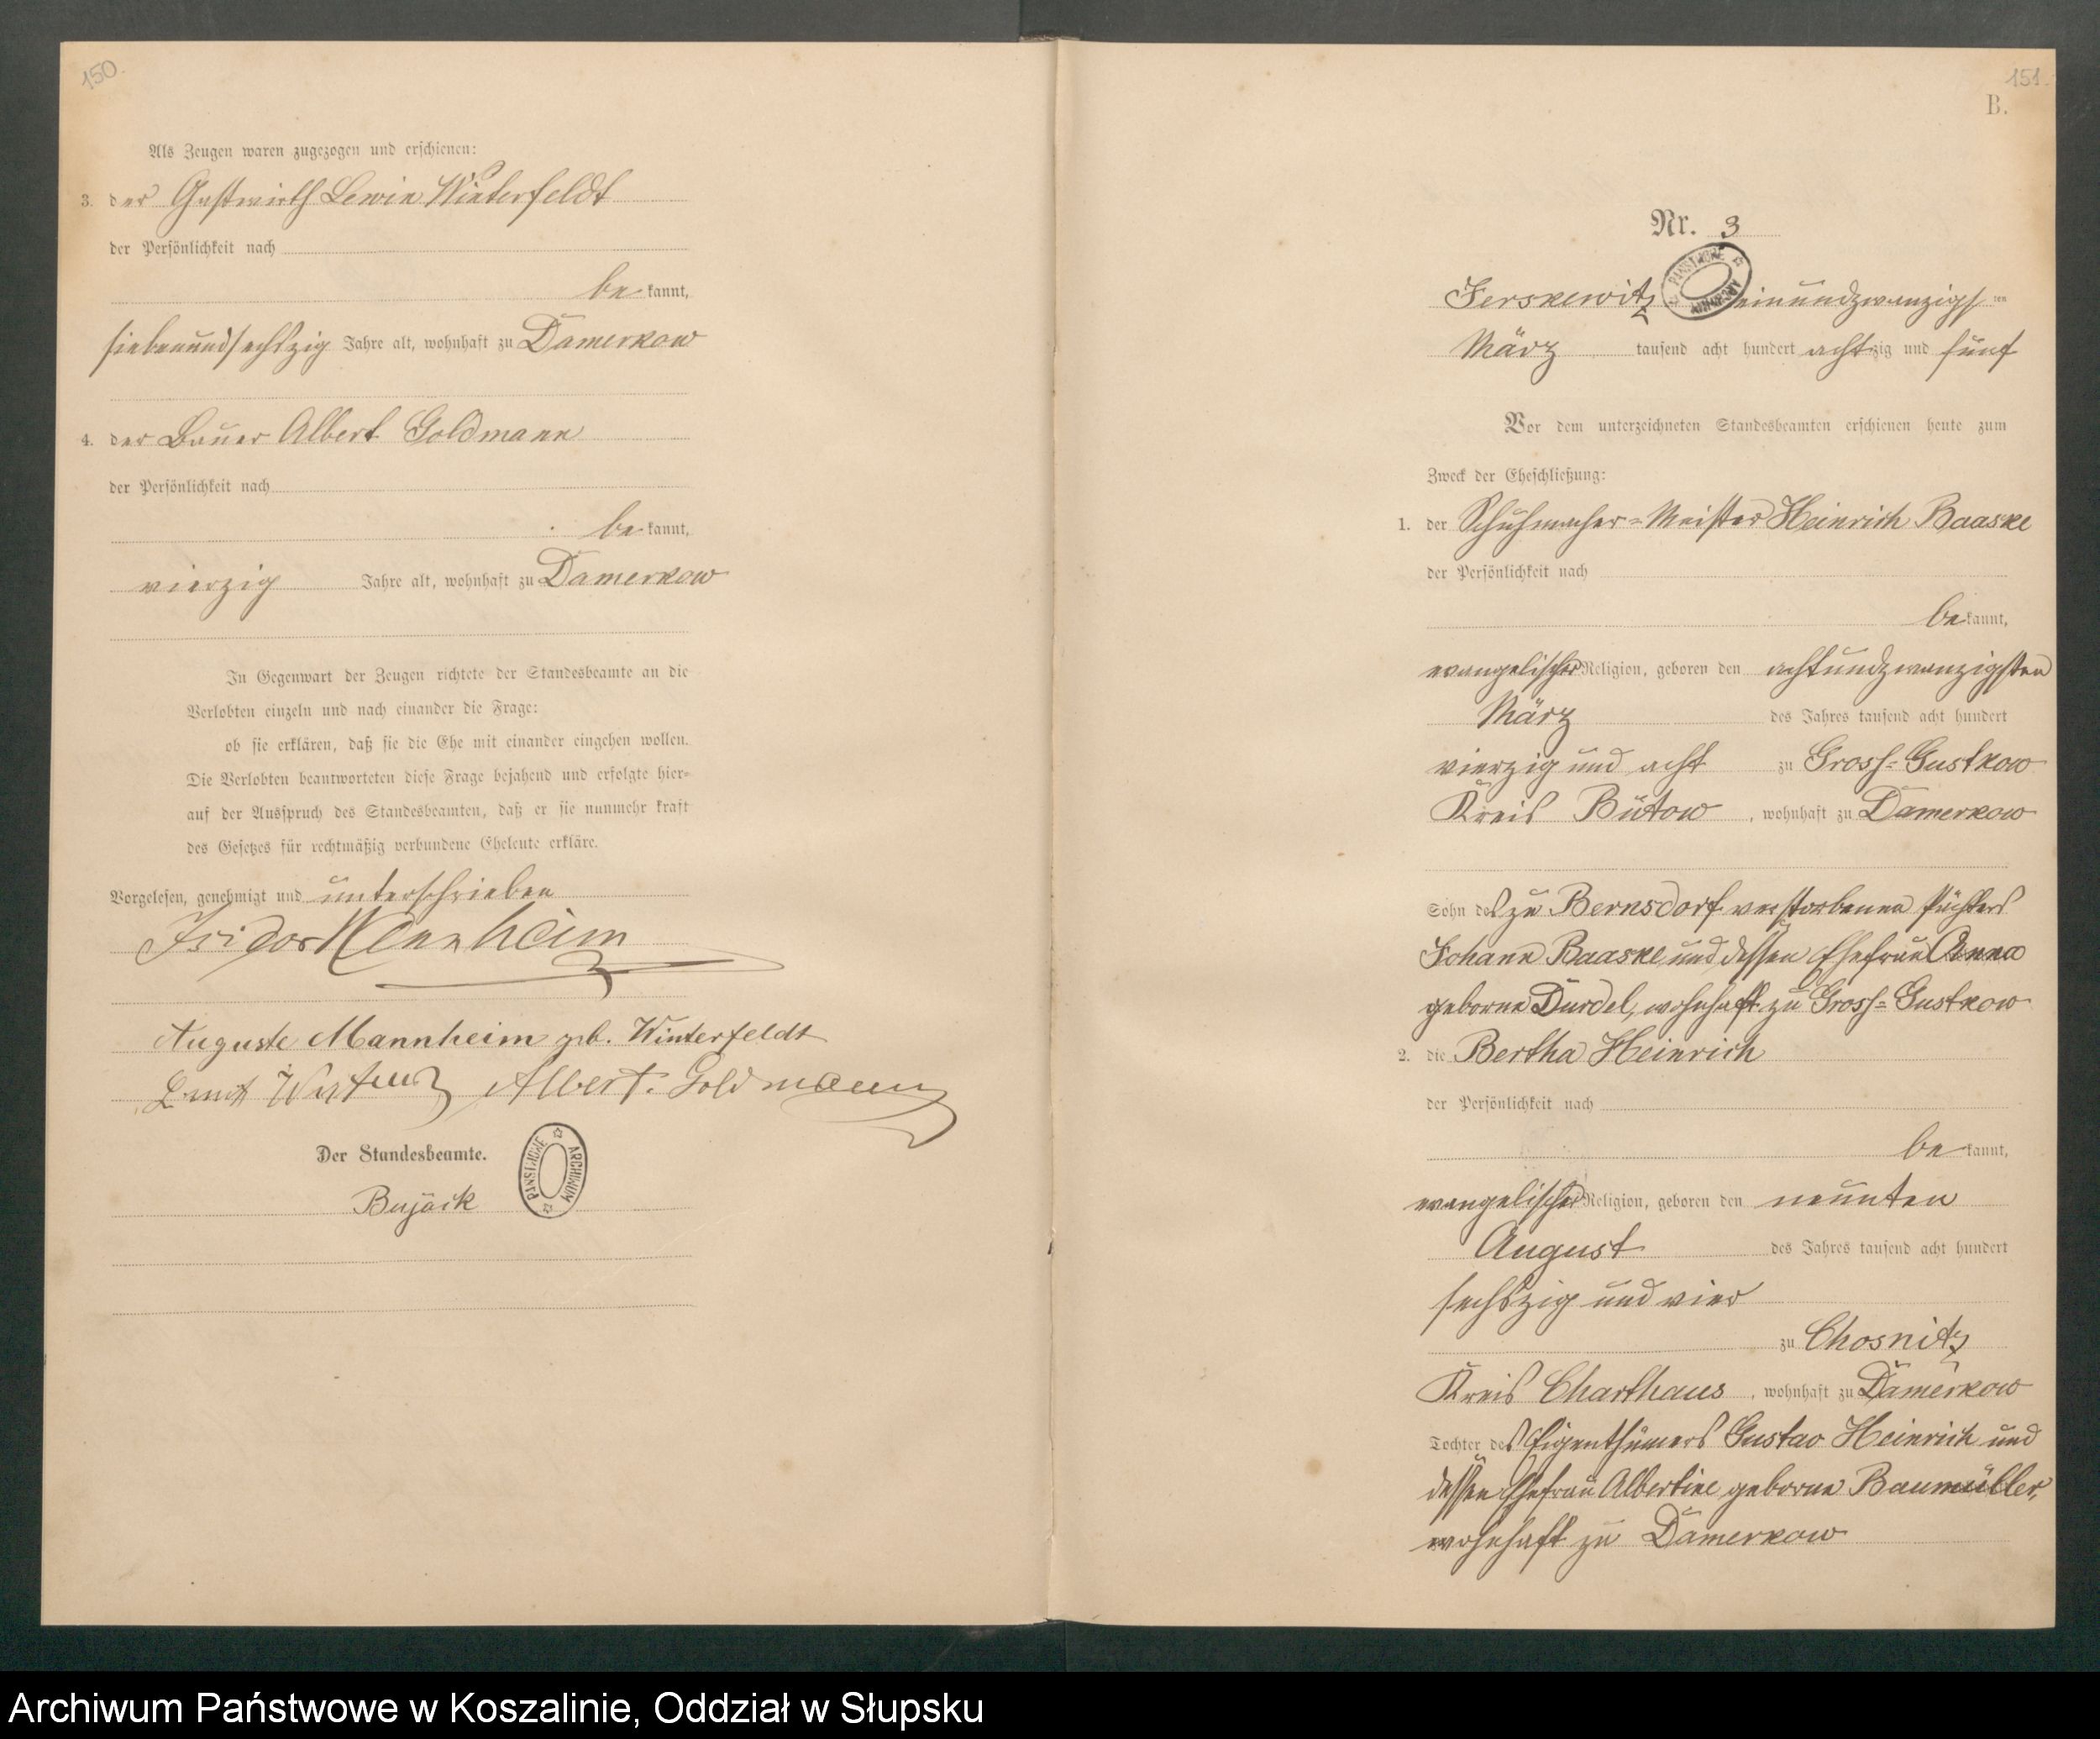 150.
Als Zeugen waren zugezogen und erschienen:
3. der Gastwirth Lewin Winterfeldt
der Persönlichkeit nach
be kannt,
siebenundsechszig Jahre alt, wohnhaft zu Damerkow
4. der Bauer Albert Goldmann
der Persönlichkeit nach
be kannt,
vierzig Jahre alt, wohnhaft zu Damerkow
In Gegenwart der Zeugen richtete der Standesbeamte an die
Verlobten einzeln und nach einander die Frage:
ob sie erklären, daß sie die Ehe mit einander eingehen wollen.
Die Verlobten beantworteten diese Frage bejahend und erfolgte hier-
auf der Ausspruch des Standesbeamten, daß er sie nunmehr kraft
des Gesetzes für rechtmäßig verbundene Eheleute erkläre.
Vorgelesen, genehmigt und unterschrieben
Isidor Mannheim
Auguste Mannheim geb. Winterfeldt
Albert Goldmann
Der Standesbeamte.
ARCHIWUM PAŃSTWOWE
Bujack
151.
B.
Nr. 3
ARCHIWUM PAŃSTWOWE
Jerskewitz einundzwanzigsten
März tausend acht hundert achtzig und fünf
Vor dem unterzeichneten Standesbeamten erschienen heute zum
Zweck der Eheschließung:
1. der Schuhmacher-Meister Heinrich Baaske
der Persönlichkeit nach
be kannt,
evangelischer Religion, geboren den achtundzwanzigsten
März des Jahres tausend acht hundert
vierzig und acht zu Gross-Gustkow
Kreis Bütow, wohnhaft zu Damerkow
Sohn des zu Bernsdorf verstorbenen Pächters
Johann Baaske und dessen Ehefrau Anna
geborne Durdel, wohnhaft zu Gross-Gustkow
2. die Bertha Heinrich
der Persönlichkeit nach
be kannt,
evangelischer Religion, geboren den neunten
August des Jahres tausend acht hundert
sechszig und vier
zu Chosnitz
Kreis Charthaus, wohnhaft zu Damerkow
Tochter des Eigenthümers Gustav Heinrich und
dessen Ehefrau Albertine geborne Baumüller,
wohnhaft zu Damerkow
Archiwum Państwowe w Koszalinie, Oddział w Słupsku